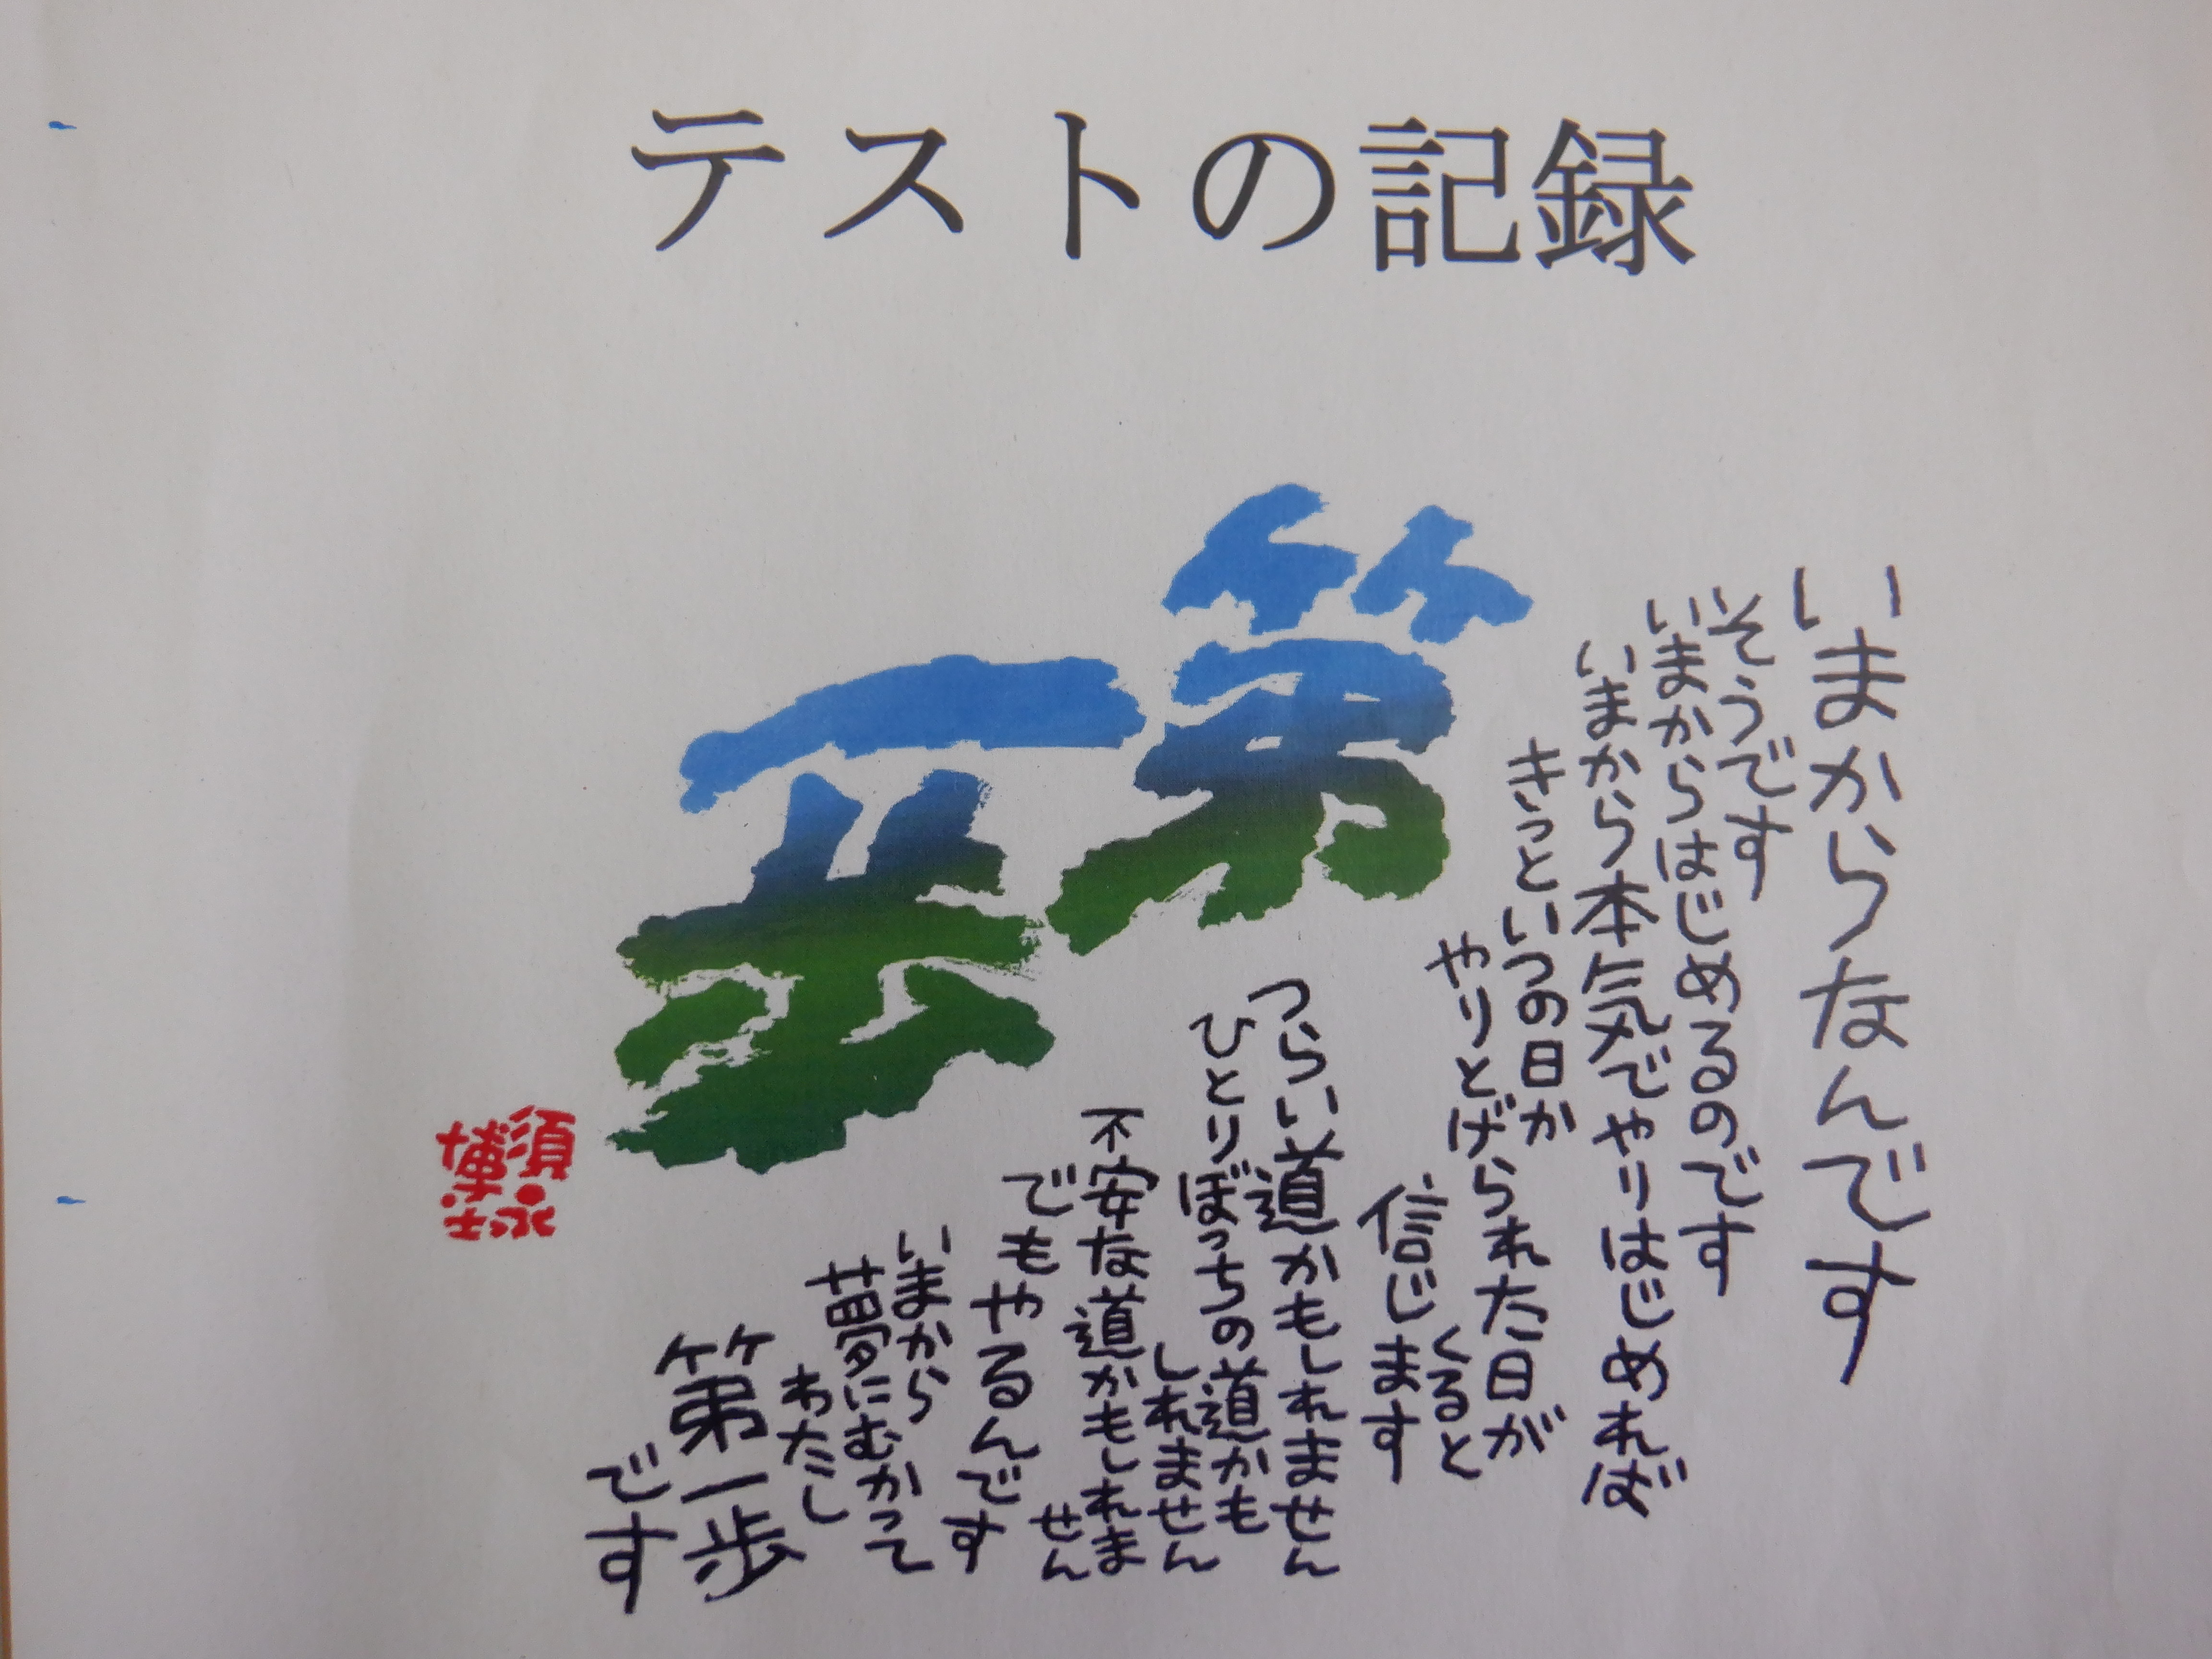 テストの記録
第一歩
いまからなんです
そうです
いまからはじめるのです
いまから本気でやりはじめれば
きっといつの日か
やりとげられた日が
くると
信じます
つらい道かもしれません
ひとりぼっちの道かも
しれません
不安な道かもしれま
せん
でもやるんです
いまから
夢にむかって
わたし
第一歩
です
須永
博士